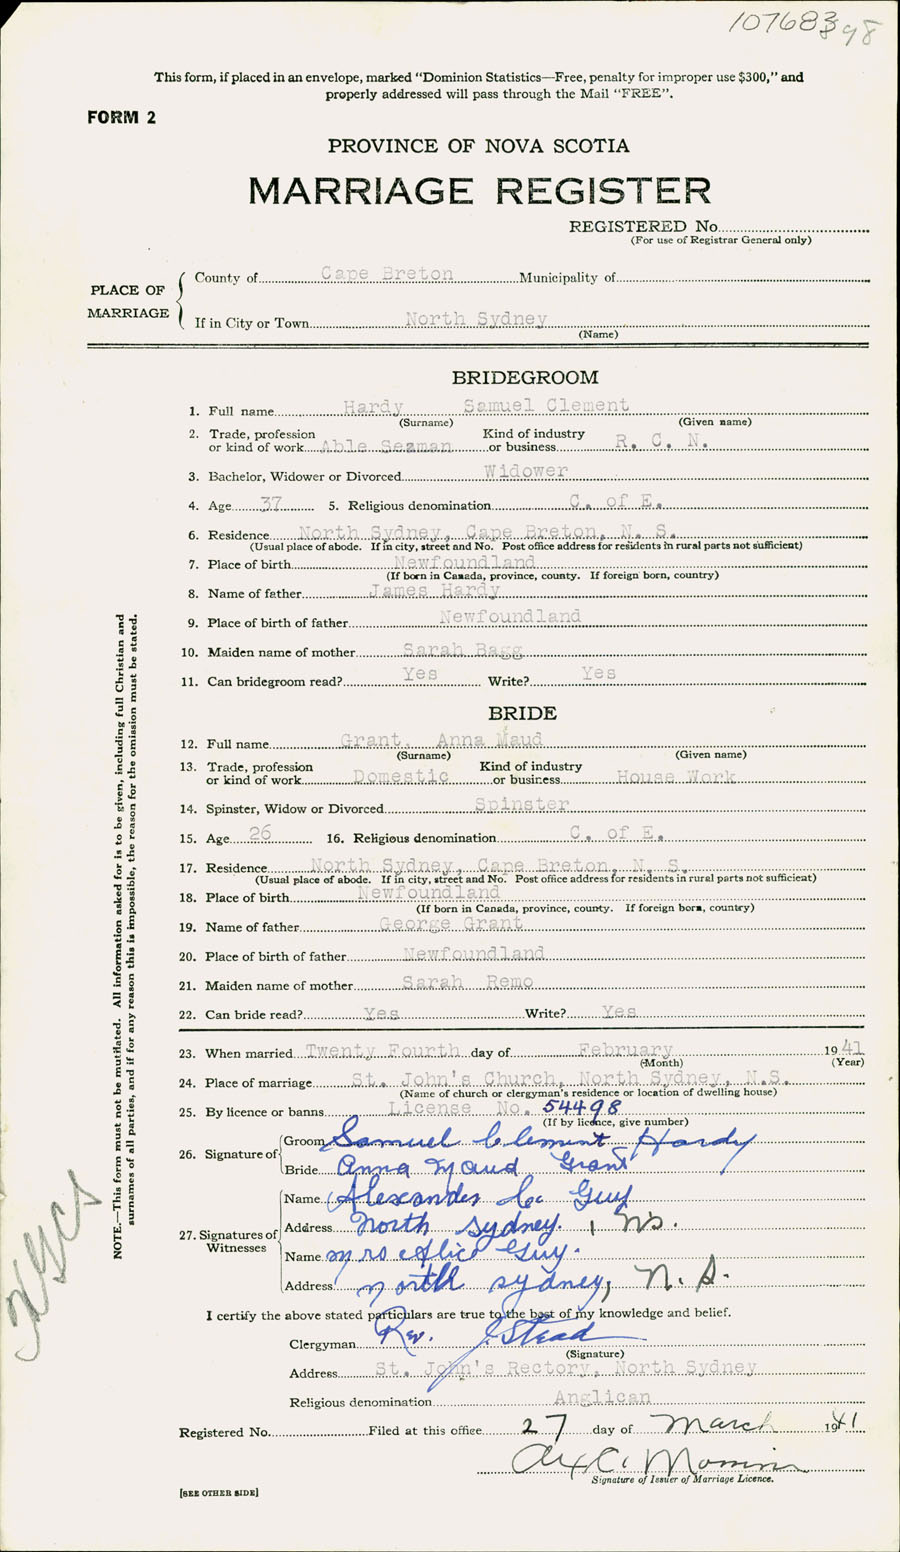 107683 898
This form, if placed in an envelope, marked "Dominion Statistics—Free, penalty for improper use $300," and
properly addressed will pass through the Mail "FREE".
FORM 2
PROVINCE OF NOVA SCOTIA
MARRIAGE REGISTER
REGISTERED No.
(For use of Registrar General only)
PLACE OF MARRIAGE
County of Cape Breton Municipality of
If in City or Town North Sydney
(Name)
BRIDEGROOM
1. Full name Hardy Samuel Clement
(Surname) (Given name)
2. Trade, profession Kind of industry
or kind of work Able Seaman or business R. C. N.
3. Bachelor, Widower or Divorced Widower
4. Age 37 5. Religious denomination C. of E.
6. Residence North Sydney, Cape Breton, N. S.
(Usual place of abode. If in city, street and No. Post office address for residents in rural parts not sufficient)
7. Place of birth Newfoundland
(If born in Canada, province, county. If foreign born, country)
8. Name of father James Hardy
9. Place of birth of father Newfoundland
10. Maiden name of mother Sarah Bagg
11. Can bridegroom read? Yes Write? Yes
BRIDE
12. Full name Grant, Anna Maud
(Surname) (Given name)
13. Trade, profession Kind of industry
or kind of work Domestic or business House Work
14. Spinster, Widow or Divorced Spinster
15. Age 26 16. Religious denomination C. of E.
17. Residence North Sydney, Cape Breton, N. S.
(Usual place of abode. If in city, street and No. Post office address for residents in rural parts not sufficient)
18. Place of birth Newfoundland
(If born in Canada, province, county. If foreign born, country)
19. Name of father George Grant
20. Place of birth of father Newfoundland
21. Maiden name of mother Sarah Remo
22. Can bride read? Yes Write? Yes
23. When married Twenty Fourth day of February 1941
(Month) (Year)
24. Place of marriage St. John's Church, North Sydney, N.S.
(Name of church or clergyman's residence or location of dwelling house)
25. By licence or banns License No. 54498
(If by licence, give number)
26. Signature of
Groom Samuel Clement Hardy
Bride Anna Maud Grant
27. Signatures of Witnesses
Name Alexander Guy
Address North Sydney, N.S.
Name Mrs Alice Guy.
Address North Sydney, N. S.
I certify the above stated particulars are true to the best of my knowledge and belief.
Clergyman Rev. J. Stead
(Signature)
Address St. John's Rectory, North Sydney
Religious denomination Anglican
Registered No. Filed at this office 27 day of March 1941
Signature of Issuer of Marriage Licence.
[SEE OTHER SIDE]
NOTE.—This form must not be mutilated. All information asked for is to be given, including full Christian and
surnames of all parties, and if for any reason this is impossible, the reason for the omission must be stated.